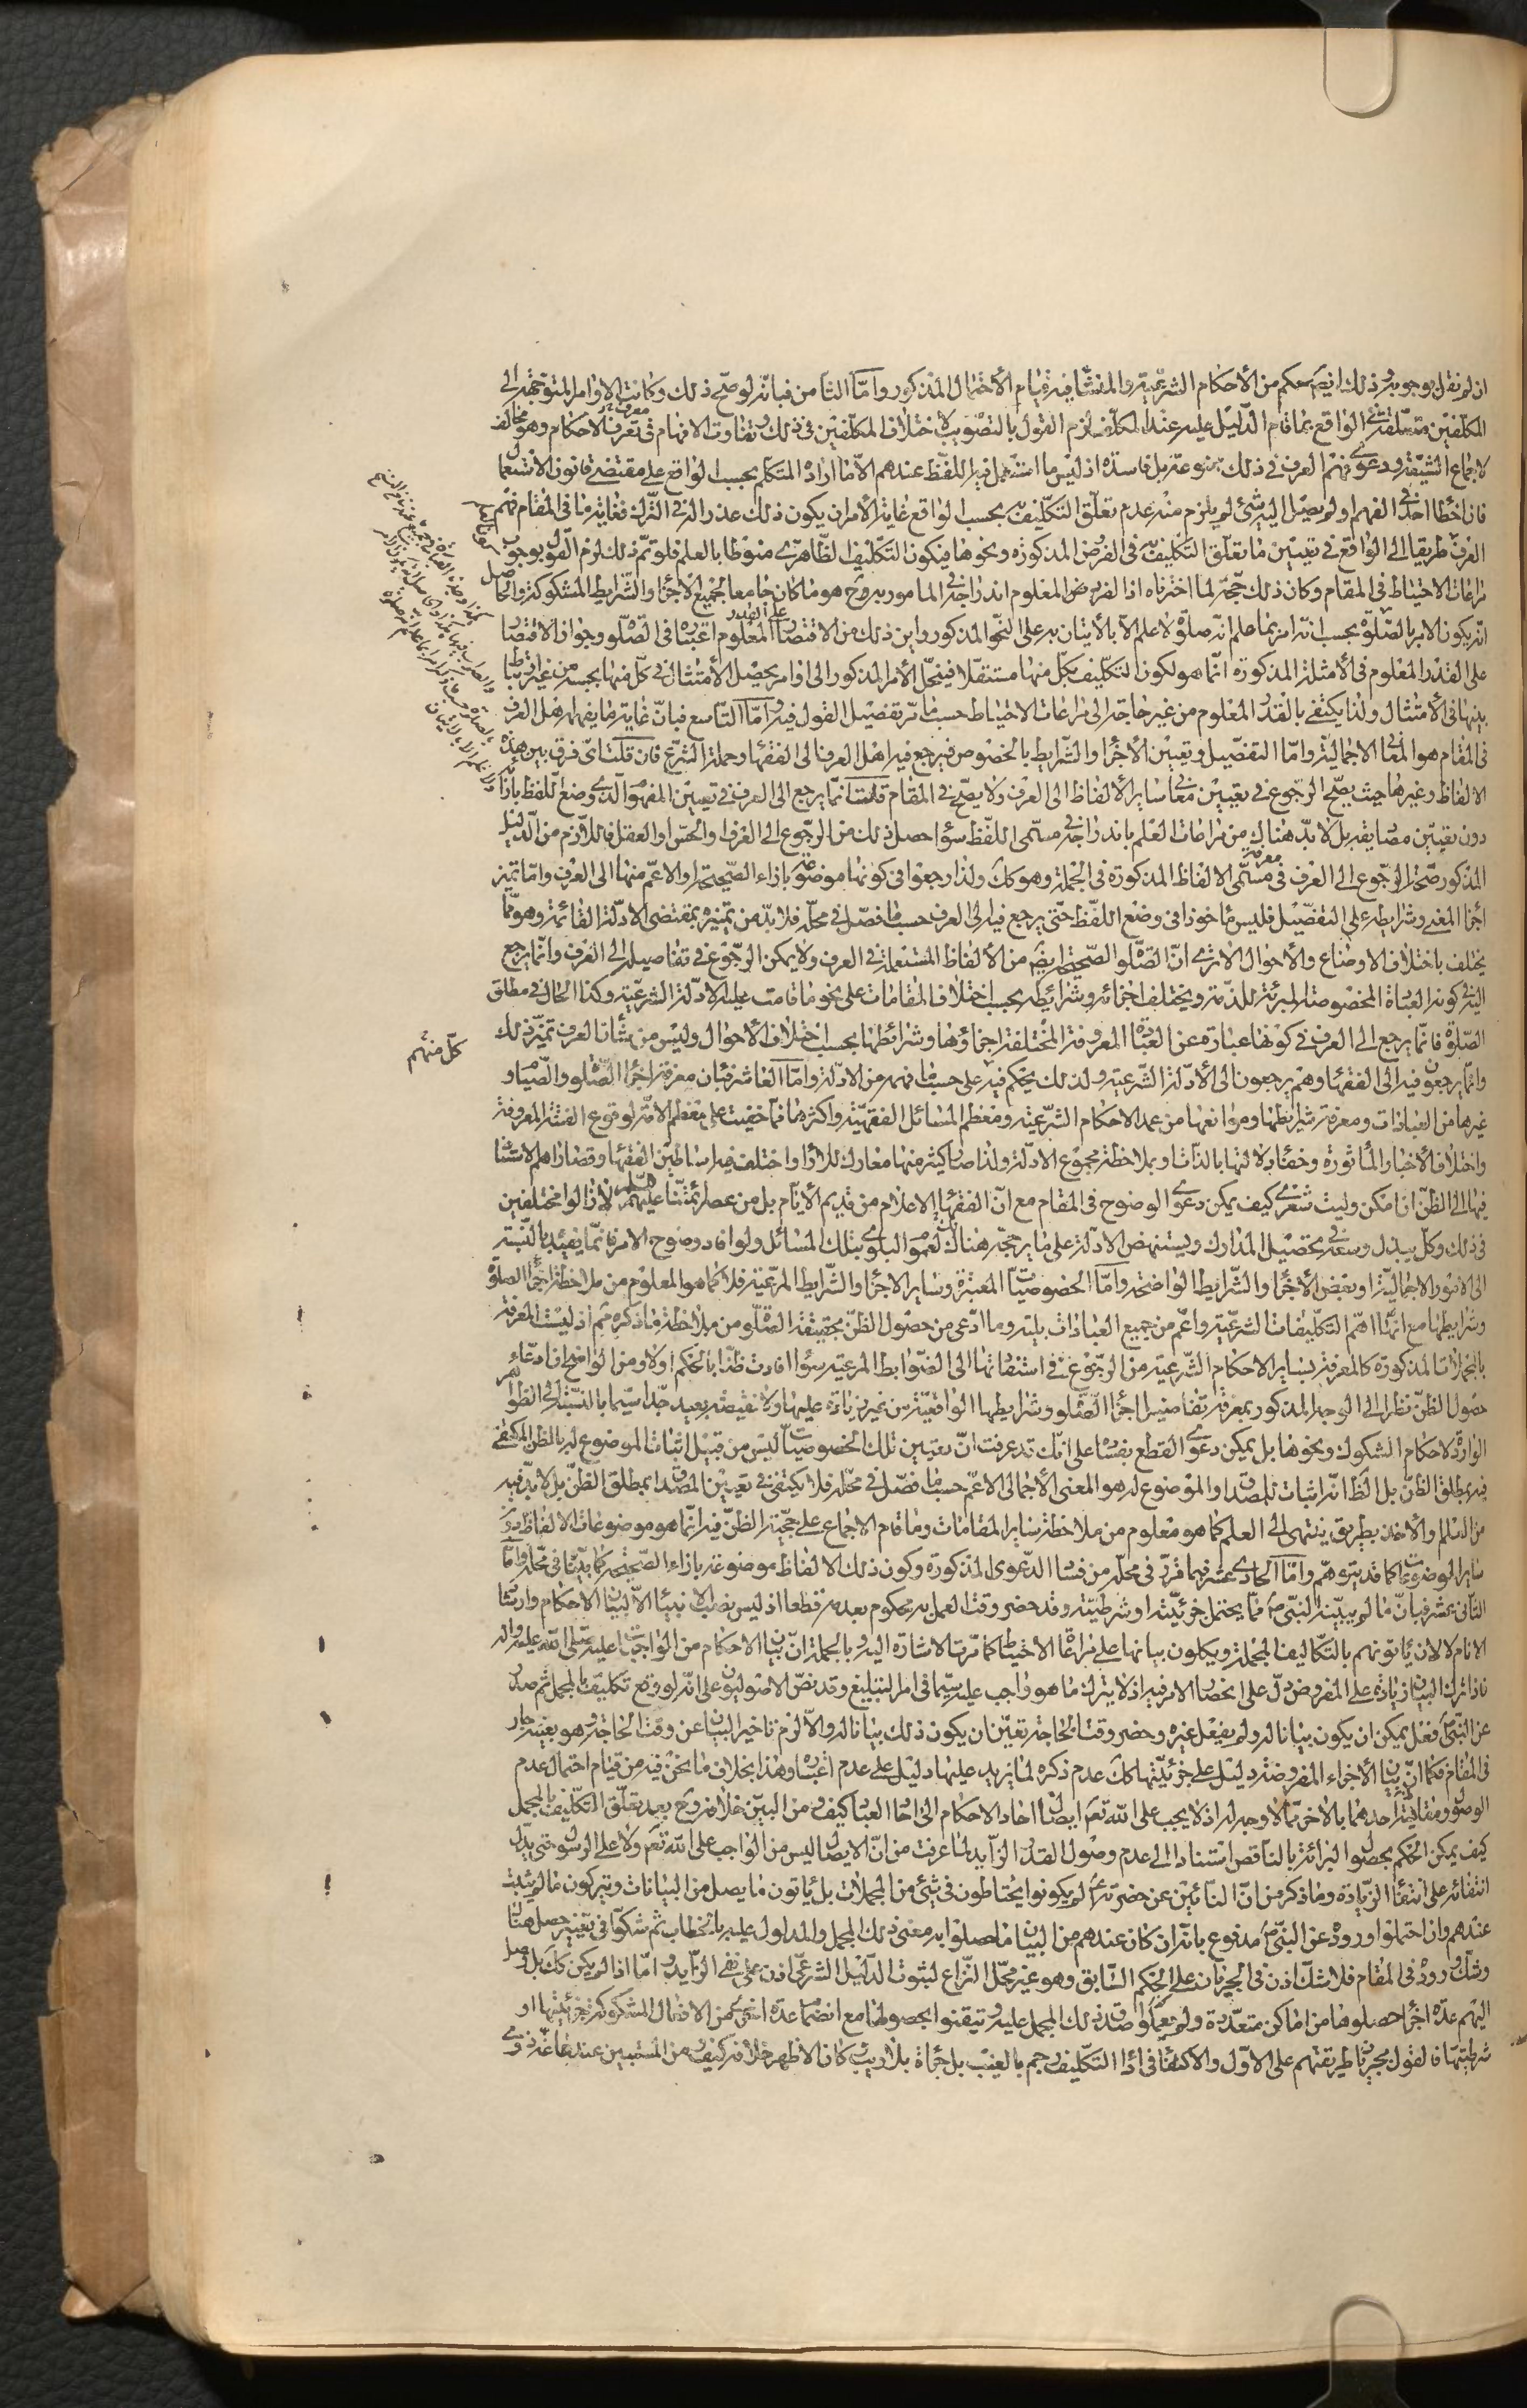 ان لم نقل بوجوبه ذلك ايضا حكم من الأحكام الشرعية والمنشأ فيه قيام الأحتمال المذكور وامّا الثامن فبانّه لو صحّ ذلك وكانت الاوامر المتوجهة الى
المكلفين متعلقة في الواقع بما قام الدّليل عليه عند المكلف لزم القول بالتصويب لاختلاف المكلّفين في ذلك وتفاوت الافهام في معرفة الاحكام وهو مخالف
لاجماع الشيعة ودعوى فهم العرف في ذلك ممنوعة بل فاسدة اذ ليس ما استعمل فيه اللفظ عندهم الّا ما اراده المتكلم بحسب الواقع على مقتضى قانون الاستعمال
فان اخطأ احد في الفهم او لم يصل اليه شئ لم يلزم منه عدم تعلّق التكليف به بحسب الواقع غاية الأمر ان يكون ذلك عذرا له في الترك فغاية ما في المقام فهم
العرف طريقا الى الواقع في تعيين ما تعلق التكليف به في الفرض المذكورة ونحوها فيكون التكليف الظاهري منوطا بالعلم فلو تمّ ذلك لزم القول بوجوب
مراعات الاحتياط في المقام وكان ذلك حجّة لما اخترناه اذ المفروض المعلوم اندراجه في المامور به ح هو ما كان جامعا لجميع الأجزاء والشرايط المشكوكة والحاصل
انّه يكون الامر بالصّلوة بحسب انّه امر بما علم انّه صلوة ولا علم الّا بالأتيان به على النحو المذكور واين ذلك من الاقتصار على القدر المعلوم اعتباره في الصلوة وجواز الاقتصار
على القدر المعلوم في الأمثلة المذكورة انّما هو لكون التكليف بكلّ منها مستقلا فينحلّ الأمر المذكور الى اوامر يحصل الأمتثال في كلّ منها بحسبه من غير ارتباط
بينها في الأمتثال ولذا يكتفى بالقدر المعلوم من غير حاجة الى مراعات الاحتياط حسب ما مرّ تفصيل القول فيه وامّا التاسع فبانّ غاية ما يفهمه اهل العرف
في المقام هو المعنى الاجمالية وامّا التفصيل وتعيين الأجزاء والشرايط بالخصوص فيرجع فيه اهل العرف الى الفقهاء وحملة الشرع فان قلت ايّ فرق بين هذه
الالفاظ وغيرها حيث يصحّ الرجوع في تعيين معاني ساير الألفاظ الى العرف ولا يصحّ في المقام قلت انّما يرجع الى العرف في تعيين المفهوم الذي وضع اللفظ بازائه
دون تعيين مصاديقه بل لا بدّ هناك من مراعات العلم باندراجه في مسمّى اللفظ سواء حصل ذلك من الرجوع الى العرف او الحسّ او العقل فاللازم من الدليل
المذكور صحّة الرجوع الى العرف في معرفة مسمّى الالفاظ المذكورة في الجملة وهو كك ولذا رجعوا في كونها موضوعة بازاء الصّحيحة او الاعمّ منها الى العرف وامّا تميز
اجزاء المعنى وشرايطه على التفصيل فليس مأخوذا في وضع اللفظ حتّى يرجع فيه الى العرف حسب ما فصّل في محلّه فلا بدّ من تميزه بمقتضى الادلة القائمة وهو ممّا
يختلف باختلاف الاوضاع والأحوال الا ترى انّ الصّلوة الصّحيحة ايضا من الألفاظ المستعملة في العرف ولا يمكن الرجوع في تفاصيله الى العرف وانّما يرجع
اليه في كونه العبادة المخصوصة المبرئة للذمّة ويختلف اجزائه وشرائطه بحسب اختلاف المقامات على نحو ما قامت عليه الادلة الشرعية وكذا الحال في مطلق
الصّلوة فانّما يرجع الى العرف في كونها عبارة عن العبادة المعروفة المختلفة اجزاؤها وشرائطها بحسب اختلاف الأحوال وليس من شأن العرف تميّز ذلك
وانّما يرجعون فيه الى الفقهاء وهم يرجعون الى الأدلة الشرعية ولذلك يحكم فيه كلّ منهم على حسب ما فهمه من الادلة وامّا العاشر فبان معرفة اجزاء الصّلوة والصّيام و
غيرها من العبادات ومعرفة شرايطها وموانعها من عمد الاحكام الشرعية ومعظم المسائل الفقهية واكثرها ممّا خفيت على معظم الامّة لوقوع الفتنة المعروفة
واختلاف الأخبار المأثورة وخفاء دلالتها بالذات او بملاحظة مجموع الادلة ولذا صار كثير منها معارك للآراء واختلف فيه اساطين الفقهاء وقصاراهم الاستناد
فيها الى الظنّ ان امكن وليت شعري كيف يمكن دعوى الوضوح في المقام مع انّ الفقهاء الاعلام من قديم الأيّام بل من عصر ائمّتنا عليهم السّلام لا زالوا مختلفين
في ذلك وكلّ يبذل وسعه في تحصيل المدارك ويستنهض الادلة على ما يرجّحه هناك وعموم البلوى بتلك المسائل ولو افاد وضوح الامر فانّما يفيد بالنسبة
الى الامور الاجمالية او بعض الأجزاء والشّرايط الواضحة وامّا الخصوصيات المعتبرة وساير الاجزاء والشرايط المرعية فلا كما هو المعلوم من ملاحظة اجزاء الصلوة
وشرايطها مع انّها اهمّ التكليفات الشرعية واعمّ من جميع العبادات بلية وما ادّعى من حصول الظنّ بحقيقة الصّلوة من ملاحظة ما ذكره ثم اذ ليست المعرفة
بالمجملات المذكورة كالمعرفة بساير الاحكام الشرعية من الرجوع في استفادتها الى الضوابط المرعية سواء افادت ظنا بالحكم او لا ومن الواضح ان ادّعاء
حصول الظنّ نظرا الى الوجه المذكور بمعرفة تفاصيل اجزاء الصّلوة وشرايطها الواقعية من غير زيادة عليها ولا نقيصة بعيد جدّا سيّما بالنسبة الى الظواهر
الواردة لاحكام الشكوك ونحوها بل يمكن دعوى القطع بفساده على انّك قد عرفت انّ تعيين تلك الخصوصيات ليس من قبيل اثبات الموضوع له بالظن المكتفى
فيه بمطلق الظنّ بل الظ انّه اثبات للمصداق والموضوع له هو المعنى الأجمالي الاعمّ حسب ما فصّل في محلّه فلا يكتفى في تعيين المصداق بمطلق الظنّ بل لا بدّ فيه
من العلم والأخذ بطريق ينتهى الى العلم كما هو معلوم من ملاحظة ساير المقامات وما قام الاجماع على حجّية الظنّ فيه انّما هو موضوعات الالفاظ دون
ساير الموضوعات كما قد يتوهّم وامّا الحادى عشر فبما قرّر في محلّه من فساد الدّعوى المذكورة وكون ذلك الالفاظ موضوعة بازاء الصّحيحة كما بيّنا في محلّه وامّا
الثاني عشر فبانّ ما لم يبيّنه النبيّ ص ممّا يحتمل جزئيّته او شرطيته وقد حضر وقت العمل به محكوم بعدمه قطعا اذ ليس نصب الانبياء الّا لبيان الاحكام وارشاد
الانام لا لان يأتونهم بالتكاليف المجملة ويكلون بيانها على مراعاة الاحتياط كما مرّت الاشارة اليه وبالجملة انّ بيان الاحكام من الواجبات عليه صلّى الله عليه وآله
فاذا ترك البيان زيادة على المفروض دلّ على انحصار الامر فيه اذ لا يترك ما هو واجب عليه سيّما في امر التبليغ وقد نصّ الاصوليون على انّه لو وقع تكليف بالمجمل ثم صدر
عن النّبيّ ص فعل يمكن ان يكون بيانا له ولم يفعل غيره وحضر وقت الحاجة تعيّن ان يكون ذلك بيانا له والّا لزم تاخير البيان عن وقت الحاجة وهو بعينه جار
في المقام فكما انّ بيان الأجزاء المفروضة دليل على جزئيّتها كك عدم ذكره لما يزيد عليها دليل على عدم اعتباره وهذا بخلاف ما نحن فيه من قيام احتمال عدم
الوصول ومقايسة احدهما بالأخر ممّا لا وجه له اذ لا يجب على الله تعم ايصال احاد الاحكام الى احاد العباد كيف ومن البيّن خلافه وح بعد تعلّق التكليف بالمجمل
كيف يمكن الحكم بحصول البرائة بالناقص استنادا الى عدم وصول القدر الزّايد لما عرفت من انّ الايصال ليس من الواجب على الله تعم ولا على الرسول حتى يدلّ
انتفائه على انتفاء الزّيادة وما ذكر من انّ النائين عن حضرته ع لم يكونوا يحتاطون في شئ من المجملات بل يأتون ما يصل من البيانات ويتركون ما لم يثبت
عندهم وان احتملوا وروده عن النبيّ ص مدفوع بانّه ان كان عندهم من البيان ما حصلوا به معنى ذلك المجمل والمداول عليه بالخطاب ثم شكّوا في تغيير حصل هناك
وشكّ ورود في المقام فلا شكّ اذن في الجريان على الحكم السّابق وهو غير محلّ النّزاع لثبوت الدّليل الشرعي اذن على نفى الزّايد وامّا اذا لم يكن كك بل وصل
اليهم عدّة اجزاء حصلوها من اماكن متعدّدة ولم يعلموا صدق ذلك المجمل عليه وتيقنوا بحصولها مع انضمام عدّة اخرى من الافعال المشكوكة جزئيتها او
شرطيتها فالقول بجريان طريقتهم على الاوّل والاكتفاء في اداء التكليف رجم بالغيب بل جزافة بلا ريب كان الاظهر خلافه كيف ومن المستبين عند عامّة ذوى
كلّ منهم